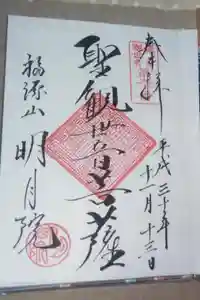 奉拝
平成三十年
十一月十三日
聖観世音菩薩
福源山
明月院